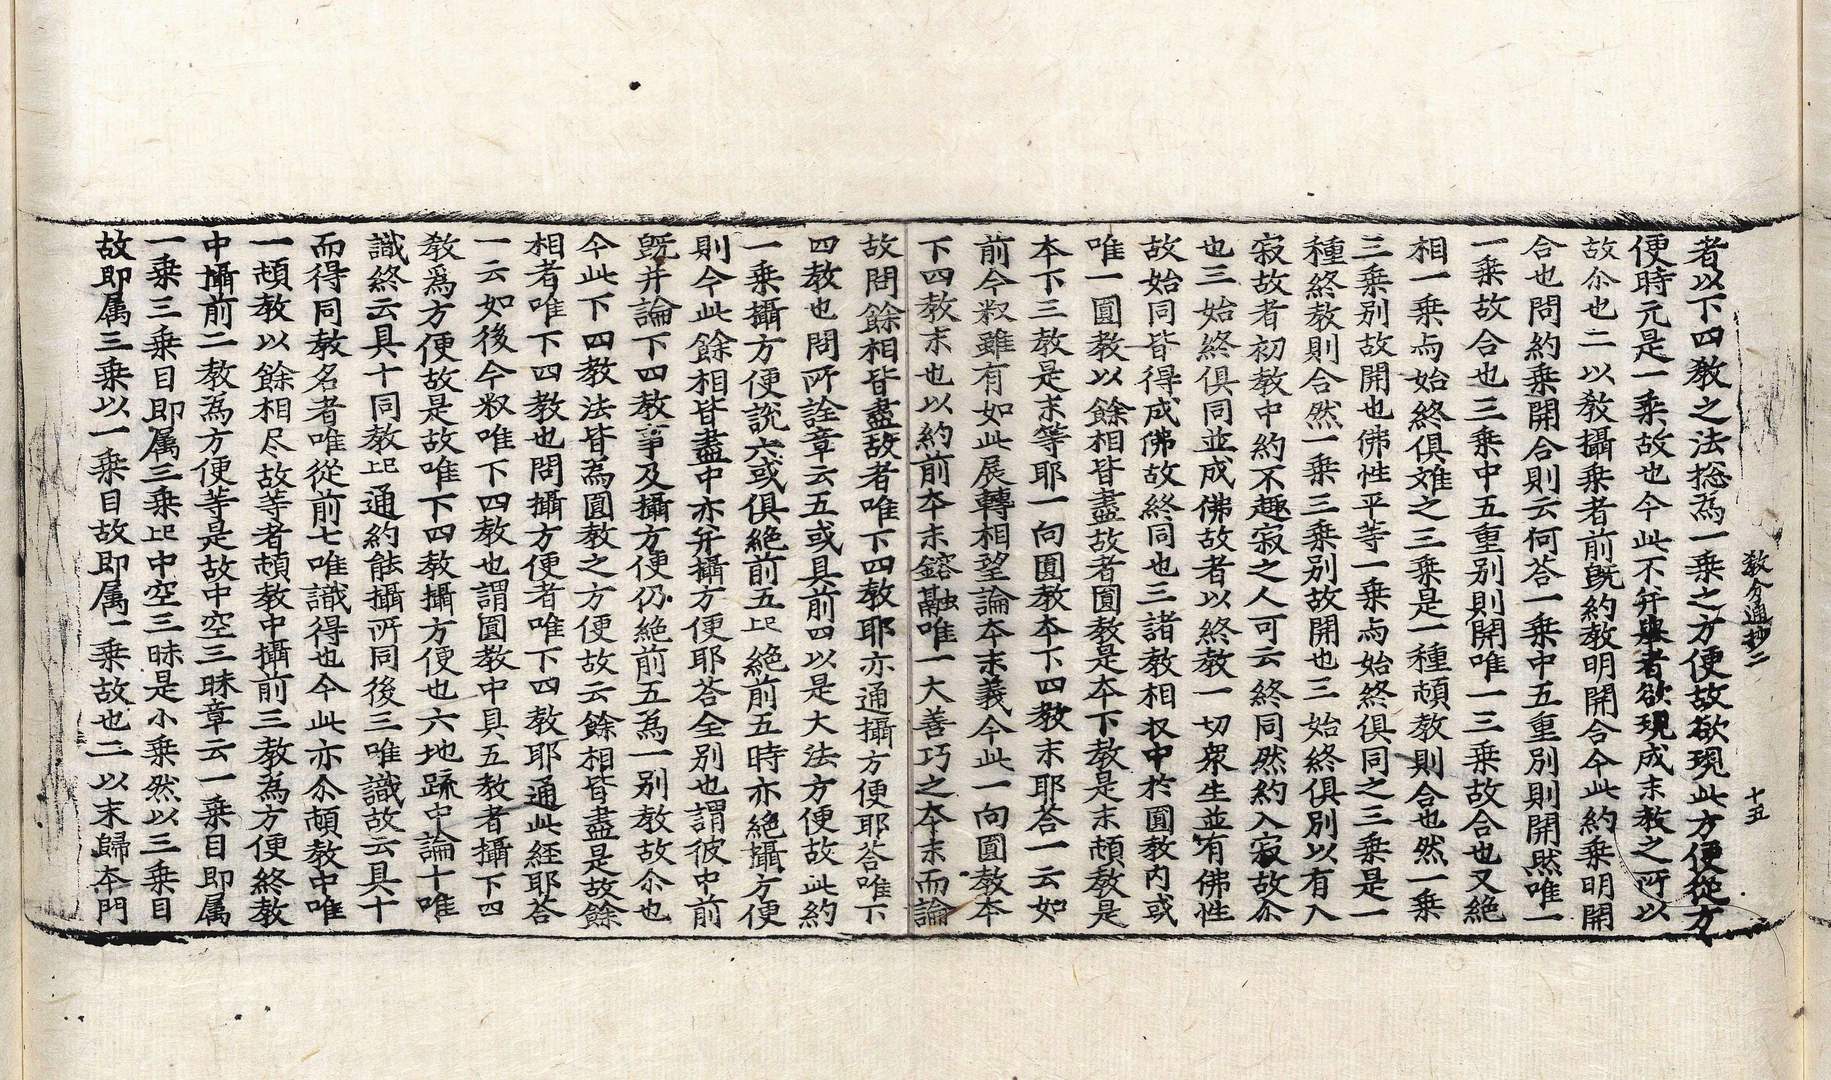 者以下四敎之法捴爲一乘之方便故欲現此方便從方
便時元是一乘故也今此不幷與者欲現成末敎之所以
故尒也二以敎攝乘者前旣約敎明開合今此約乘明開
合也問約乘開合則云何答一乘中五重別則開然唯一
一乘故合也三乘中五重別則開唯一三乘故合也又絶
相一乘与始終俱𮥼之三乘是一種頓敎則合也然一乘
三乘別故開也佛性平等一乘与始終俱同之三乘是一
種終敎則合然一乘三乘別故開也三始終俱別以有入
寂故者初敎中約不趣寂之人可云終同然約入寂故尒
也三始終俱同並成佛故者以終敎一切衆生並有佛性
故始同皆得成佛故終同也三諸敎相收中於圓敎內或
唯一圓敎以餘相皆盡故者圓敎是本下敎是末頓敎是
本下三敎是末等耶一向圓敎本下四敎末耶答一云如
前今釈雖有如此展轉相望論本末義今此一向圓敎本
下四敎末也以約前本末鎔融唯一大善巧之本末而論
故問餘相皆盡故者唯下四敎耶亦通攝方便耶答唯下
四敎也問所詮章云五或具前四以是大法方便故此約
一乘攝方便說六或俱絶前五㠯絶前五時亦絶攝方便
則今此餘相皆盡中亦幷攝方便耶答全別也謂彼中前
旣幷論下四敎事及攝方便仍絶前五爲一別敎故尒也
今此下四敎法皆爲圓敎之方便故云餘相皆盡是故餘
相者唯下四敎也問攝方便者唯下四敎耶通此経耶答
一云如後今釈唯下四敎也謂圓敎中具五敎者攝下四
敎爲方便故是故唯下四敎攝方便也六地䟽中論十唯
識終云具十同敎㠯通約能攝所同後三唯識故云具十
而得同敎名者唯從前七唯識得也今此亦尒頓敎中唯
一頓敎以餘相尽故等者頓敎中攝前三敎爲方便終敎
中攝前二敎爲方便等是故中空三昧章云一乘目即属
一乘三乘目即属三乘㠯中空三昧是小乘然以三乘目
故即属三乘以一乘目故即属一乘故也二以末歸本門
敎分通抄二　十五